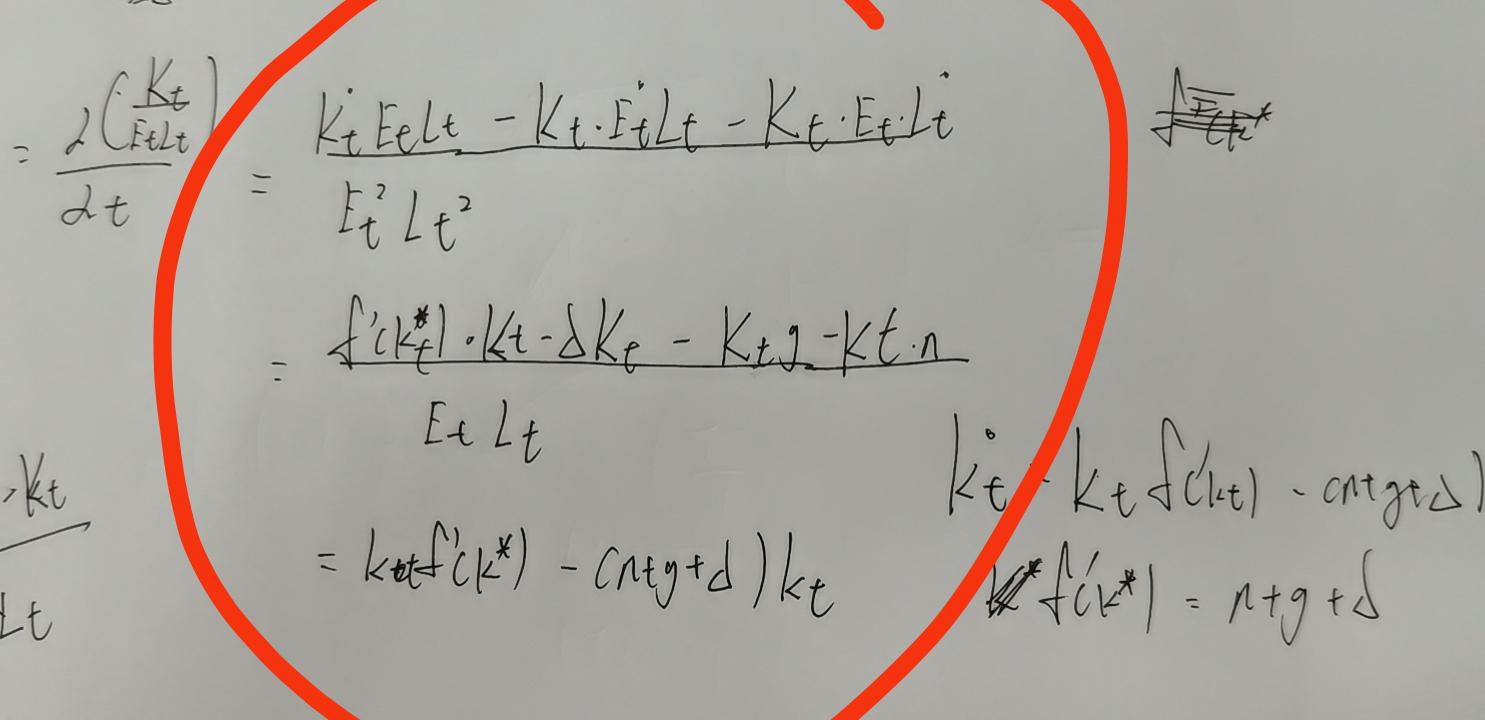 = d(Kt/EtLt)/dt = (K̇t EtLt - Kt·ĖtLt - Kt·Et·L̇t)/(Et² Lt²)
= (f'(kt*)·Kt - δKt - Ktg - Kt·n)/(Et Lt)
·Kt
k̇t = kt f'(kt) - (n+g+δ)
= kt f'(k*) - (n+g+δ)kt
f'(k*) = n+g+δ
Lt